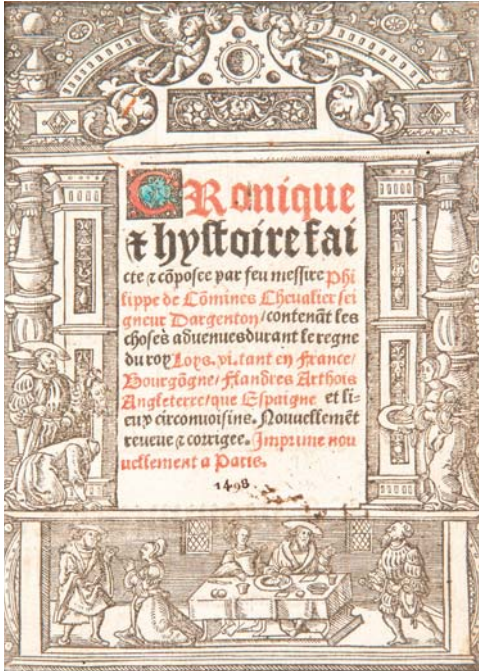 CRonique
⁊ hystoire fai
cte ⁊ cõposee par feu messire Phi
lippe de Cõmines Cheualier sei
gneur Dargenton/contenãt les
choses aduenues durant le regne
du roy Loys. xi. tant en France/
Bourgõgne/Flandres Arthois
Angleterre/que Espaigne et li-
eux circonuoisins. Nouuellemẽt
reueue ⁊ corrigee. Imprime nou
uellement a Paris.
1498.